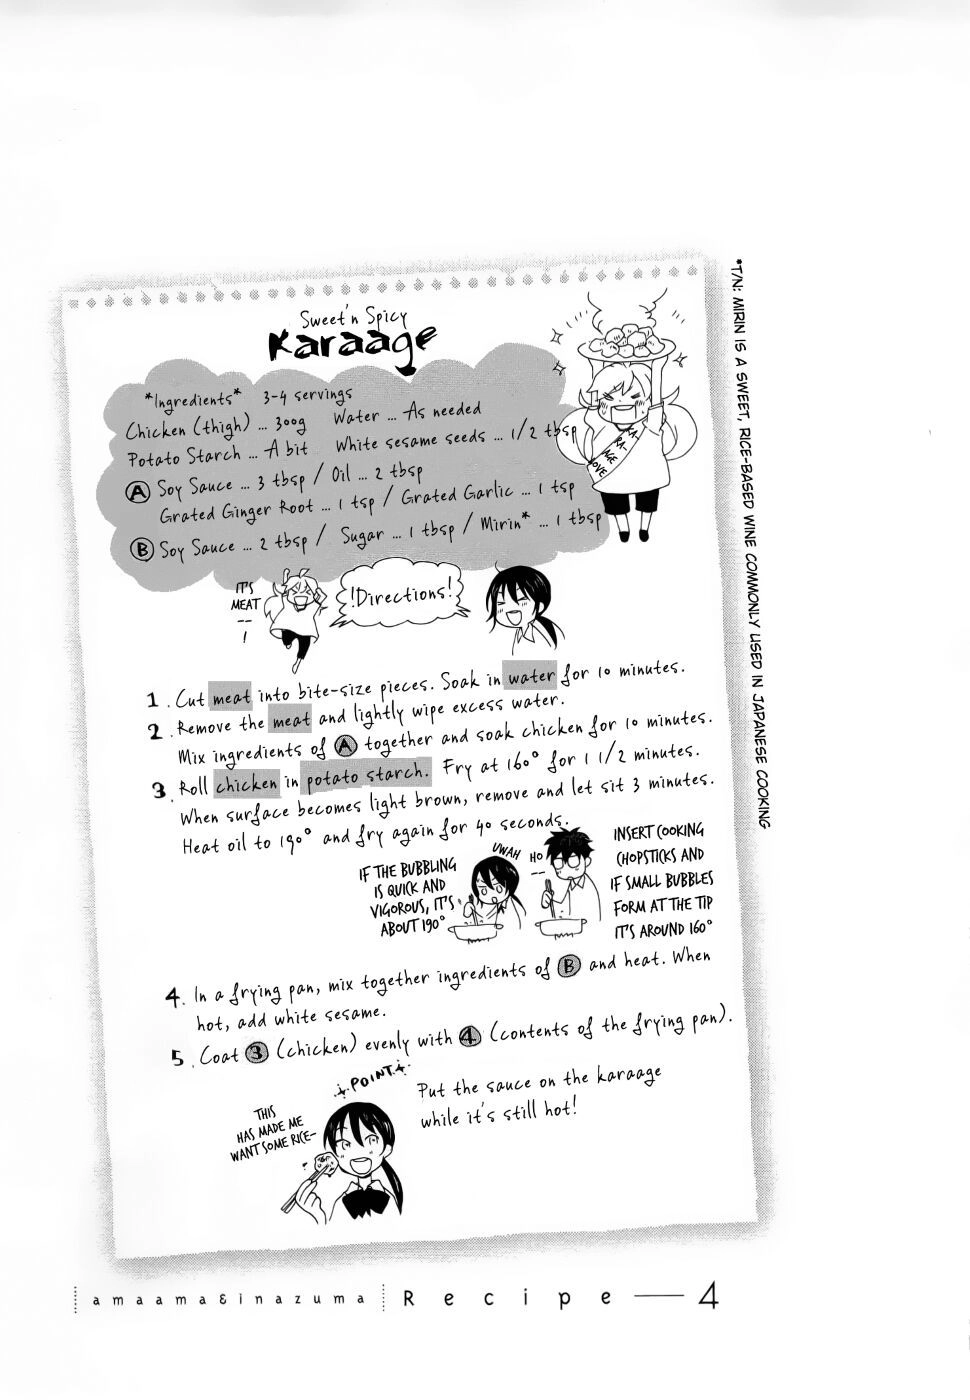 Sweet'n Spicy
Karaage
*Ingredients* 3-4 servings
Chicken (thigh) ... 300g Water ... As needed
Potato Starch ... A bit White sesame seeds ... 1/2 tbsp
Ⓐ Soy Sauce ... 3 tbsp / Oil ... 2 tbsp
Grated Ginger Root ... 1 tsp / Grated Garlic ... 1 tsp
Ⓑ Soy Sauce ... 2 tbsp / Sugar ... 1 tbsp / Mirin* ... 1 tbsp
KA-
RA-
AGE
LOVE
IT'S
MEAT
--
!
!Directions!
1. Cut meat into bite-size pieces. Soak in water for 10 minutes.
2. Remove the meat and lightly wipe excess water.
Mix ingredients of Ⓐ together and soak chicken for 10 minutes.
3. Roll chicken in potato starch. Fry at 160° for 1 1/2 minutes.
When surface becomes light brown, remove and let sit 3 minutes.
Heat oil to 190° and fry again for 40 seconds.
IF THE BUBBLING
IS QUICK AND
VIGOROUS, IT'S
ABOUT 190°
UWAH
HO
--
INSERT COOKING
CHOPSTICKS AND
IF SMALL BUBBLES
FORM AT THE TIP
IT'S AROUND 160°
4. In a frying pan, mix together ingredients of Ⓑ and heat. When
hot, add white sesame.
5. Coat ③ (chicken) evenly with ④ (contents of the frying pan).
POINT
THIS
HAS MADE ME
WANT SOME RICE~
Put the sauce on the karaage
while it's still hot!
*T/N: MIRIN IS A SWEET, RICE-BASED WINE COMMONLY USED IN JAPANESE COOKING
amaama&inazuma Recipe — 4